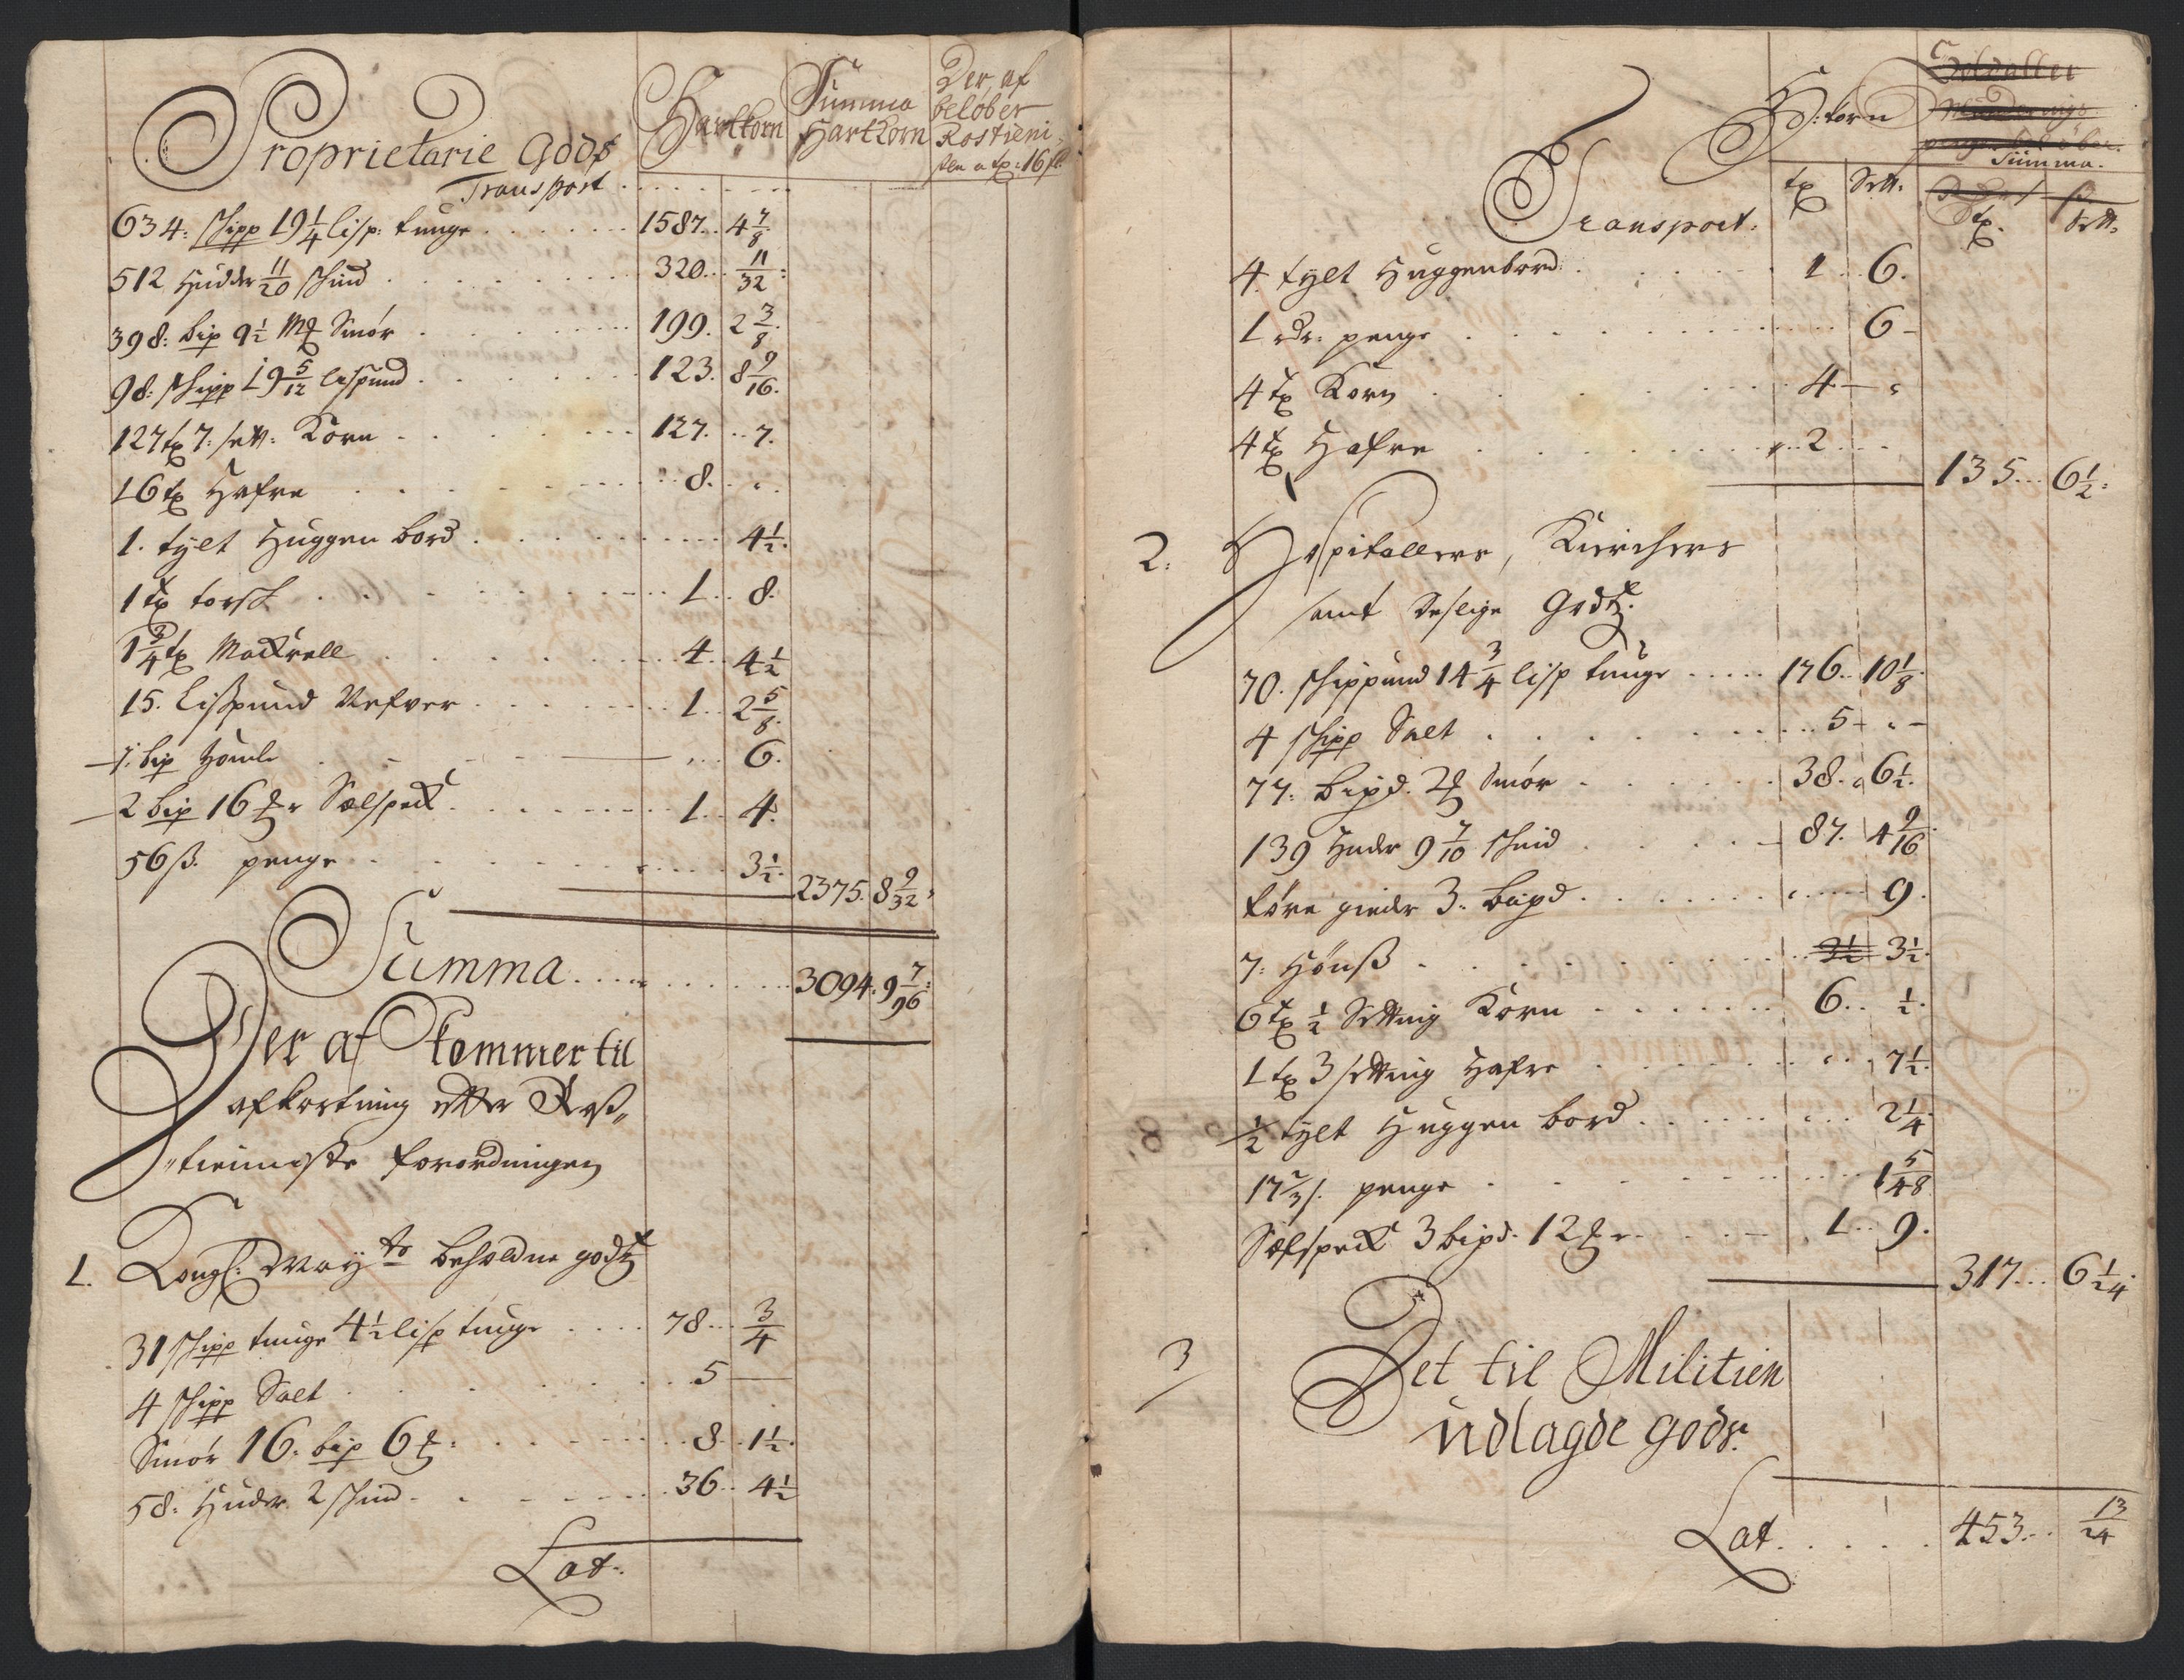 Proprietarie Godß
Hartkorn
Summa Hartkorn
Der af beløber Rostieni, sten a tp: 16 ß
Transport . . . . . . .
634: schipp 19 1/4 lisp: tunge . . . . . 1587. 4 7/8
512 Hudder 11/20 schind . . . . . 320. 11/32
398: bip 9 1/2 Mk Smør . . . . . 199. 2 3/8
98: schipp 19 5/12 lispund . . . . . 123. 8 9/16
127 tp 7: sett: Korn . . . . . 127. 7.
16 tp Hafre . . . . . 8.
1. tylt Huggen bord . . . . . 4 1/2
1 tp torsk . . . . . 1. 8.
1 3/4 tp Mackrell . . . . . 4. 4 1/2
15. Lißpund Nefver . . . . . 1. 2 5/8
1. bip Homle . . . . . 6.
2 bip 16 r Sælspeck . . . . . 1. 4.
56 ß. penge . . . . . 3 1/2.
2375. 8 9/32
Summa . . . . . 3094. 9 7/96
Der af kommer til
afkortning efter Roß„
„tienneste forordningen
1. Kongl: May to beholdne godz
31 schipp tunge 4 1/2 lisp tunge . . . . 78. 3/4
4 schipp Salt . . . . . 5 —
Smør 16: bip 6 : . . . . . 8. 1 1/2.
58: Huder 2 schind . . . . . 36. 4 1/2
Lat.
H: korn
Summa.
tp Sett.
tp. Sett.
Transport.
4 tylt Huggenbord . . . . . 1. 6.
1 rdr: penge . . . . . 6 –
4 tp Korn . . . . . 4 –
4 tp Hafre . . . . . 2
135. 6 1/2:
2: Hospitallers, Kirchers
samt deslige Godz.
70. schippund 14 3/4 lisp tunge . . . . . 176. 10 1/8.
4 schipp Salt . . . . . 5 –
77: bipd. 2 Smør . . . . . 38. 6 1/2.
139 Huder 9 7/10 schind . . . . . 87. 4 9/16
3. bupd . . . . . 9.
7: Hønß . . . . . 3 1/2.
6 tp 1/2 Setting Korn . . . . . 6. 1/2.
1 tp 3 setting Hafre . . . . . 7 1/2.
1/2 tylt Huggen bord . . . . . 2 1/4
17 2/3 s. penge . . . . . 1 5/48
Sælspeck 3 bipd. 12 r . . . . . 1. 9.
317. 6 1/24
3 Det til Militien
udlagde gods:
Lat . . . . . 453. 13/24